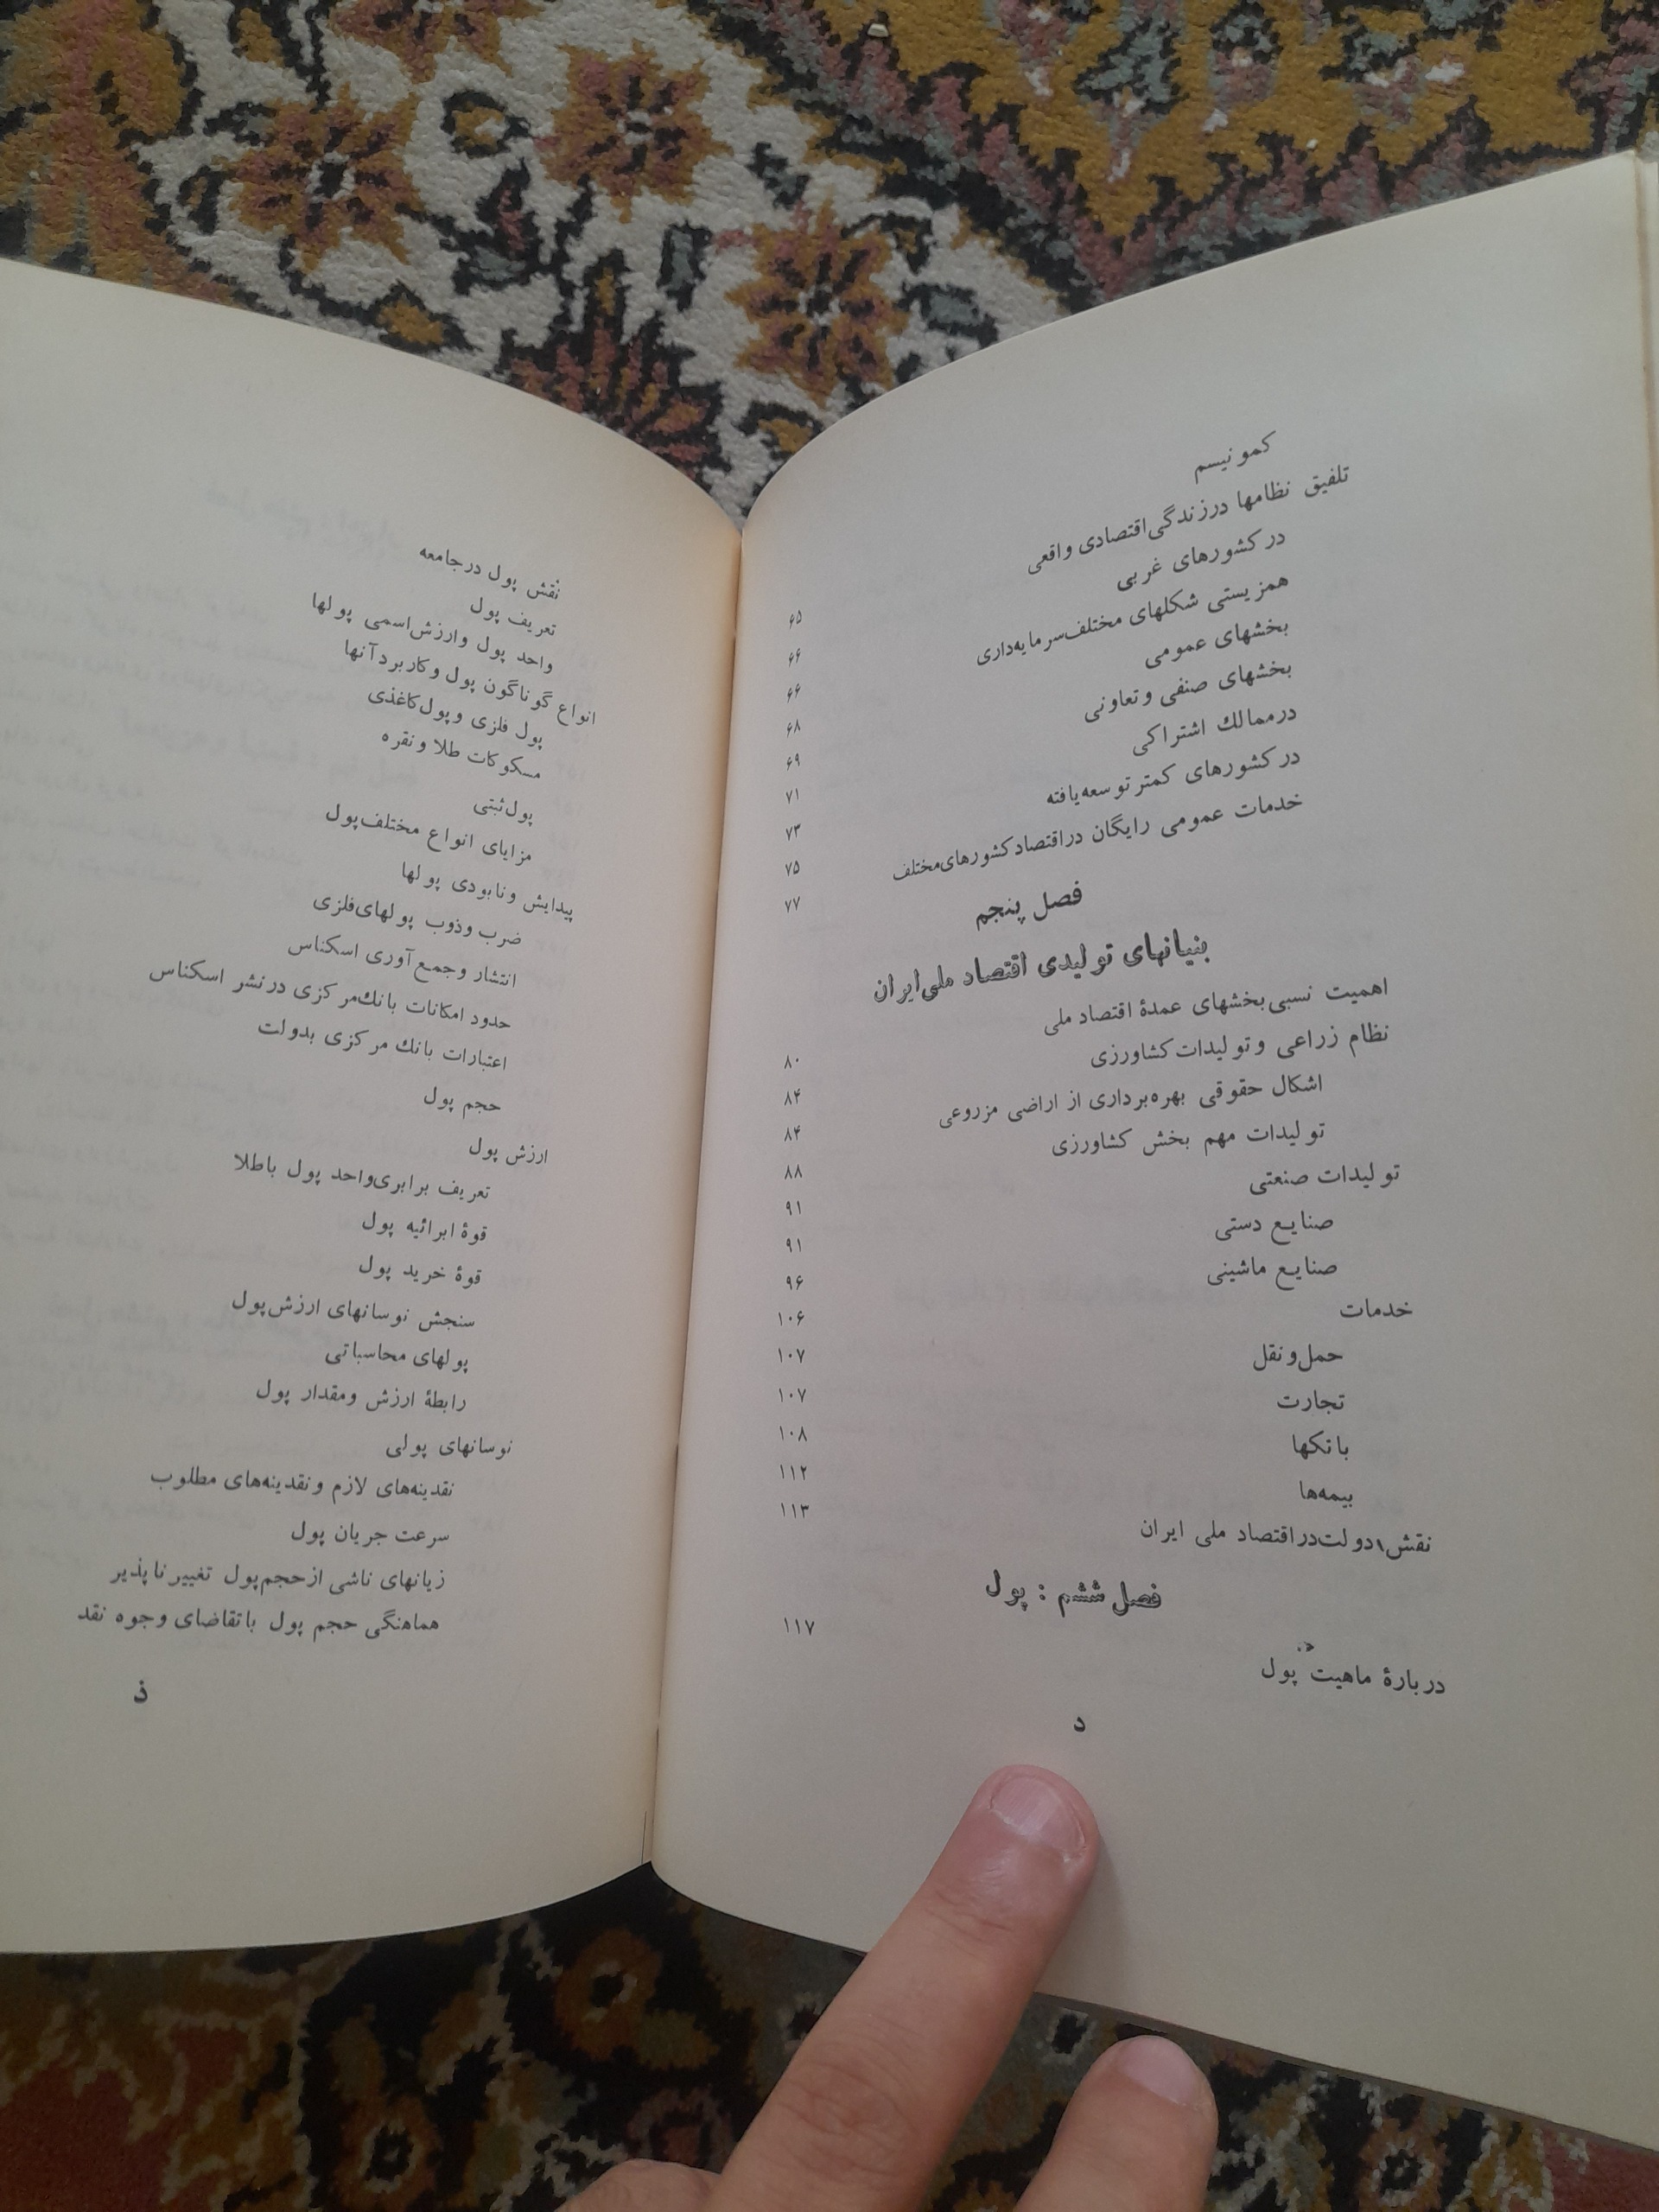 کمونیسم ۶۵
تلفیق نظامها درزندگی‌اقتصادی واقعی ۶۶
در کشورهای غربی ۶۶
همزیستی شکلهای مختلف‌سرمایه‌داری ۶۸
بخشهای عمومی ۶۹
بخشهای صنفی وتعاونی ۷۱
درممالك اشتراکی ۷۳
در کشورهای کمترتوسعه‌یافته ۷۵
خدمات عمومی رایگان دراقتصاد کشورهای‌مختلف ۷۷
فصل پنجم
بنیانهای تولیدی اقتصاد ملی‌ایران
اهمیت نسبی‌بخشهای عمدهٔ اقتصاد ملی ۸۰
نظام زراعی وتولیدات‌کشاورزی ۸۴
اشکال حقوقی بهره‌برداری از اراضی مزروعی ۸۴
تولیدات مهم بخش کشاورزی ۸۸
تولیدات صنعتی ۹۱
صنایع دستی ۹۱
صنایع ماشینی ۹۶
خدمات ۱۰۶
حمل‌ونقل ۱۰۷
تجارت ۱۰۷
بانکها ۱۰۸
بیمه‌ها ۱۱۲
نقش دولت‌دراقتصاد ملی ایران ۱۱۳
فصل ششم : پول
دربارهٔ ماهیت پول ۱۱۷
د
نقش پول درجامعه
تعریف پول
واحد پول وارزش‌اسمی پولها
انواع گوناگون پول وکاربردآنها
پول فلزی وپول‌کاغذی
مسکوکات طلا ونقره
پول‌ثبتی
مزایای انواع مختلف‌پول
پیدایش ونابودی پولها
ضرب وذوب پولهای‌فلزی
انتشار وجمع‌آوری اسکناس
حدود امکانات بانك‌مرکزی درنشر اسکناس
اعتبارات بانك مرکزی بدولت
حجم پول
ارزش پول
تعریف برابری‌واحد پول باطلا
قوهٔ ابرائیه پول
قوهٔ خرید پول
سنجش نوسانهای ارزش‌پول
پولهای محاسباتی
رابطهٔ ارزش ومقدار پول
نوسانهای پولی
نقدینه‌های لازم ونقدینه‌های مطلوب
سرعت جریان پول
زیانهای ناشی ازحجم‌پول تغییرناپذیر
هماهنگی حجم پول باتقاضای وجوه نقد
ذ